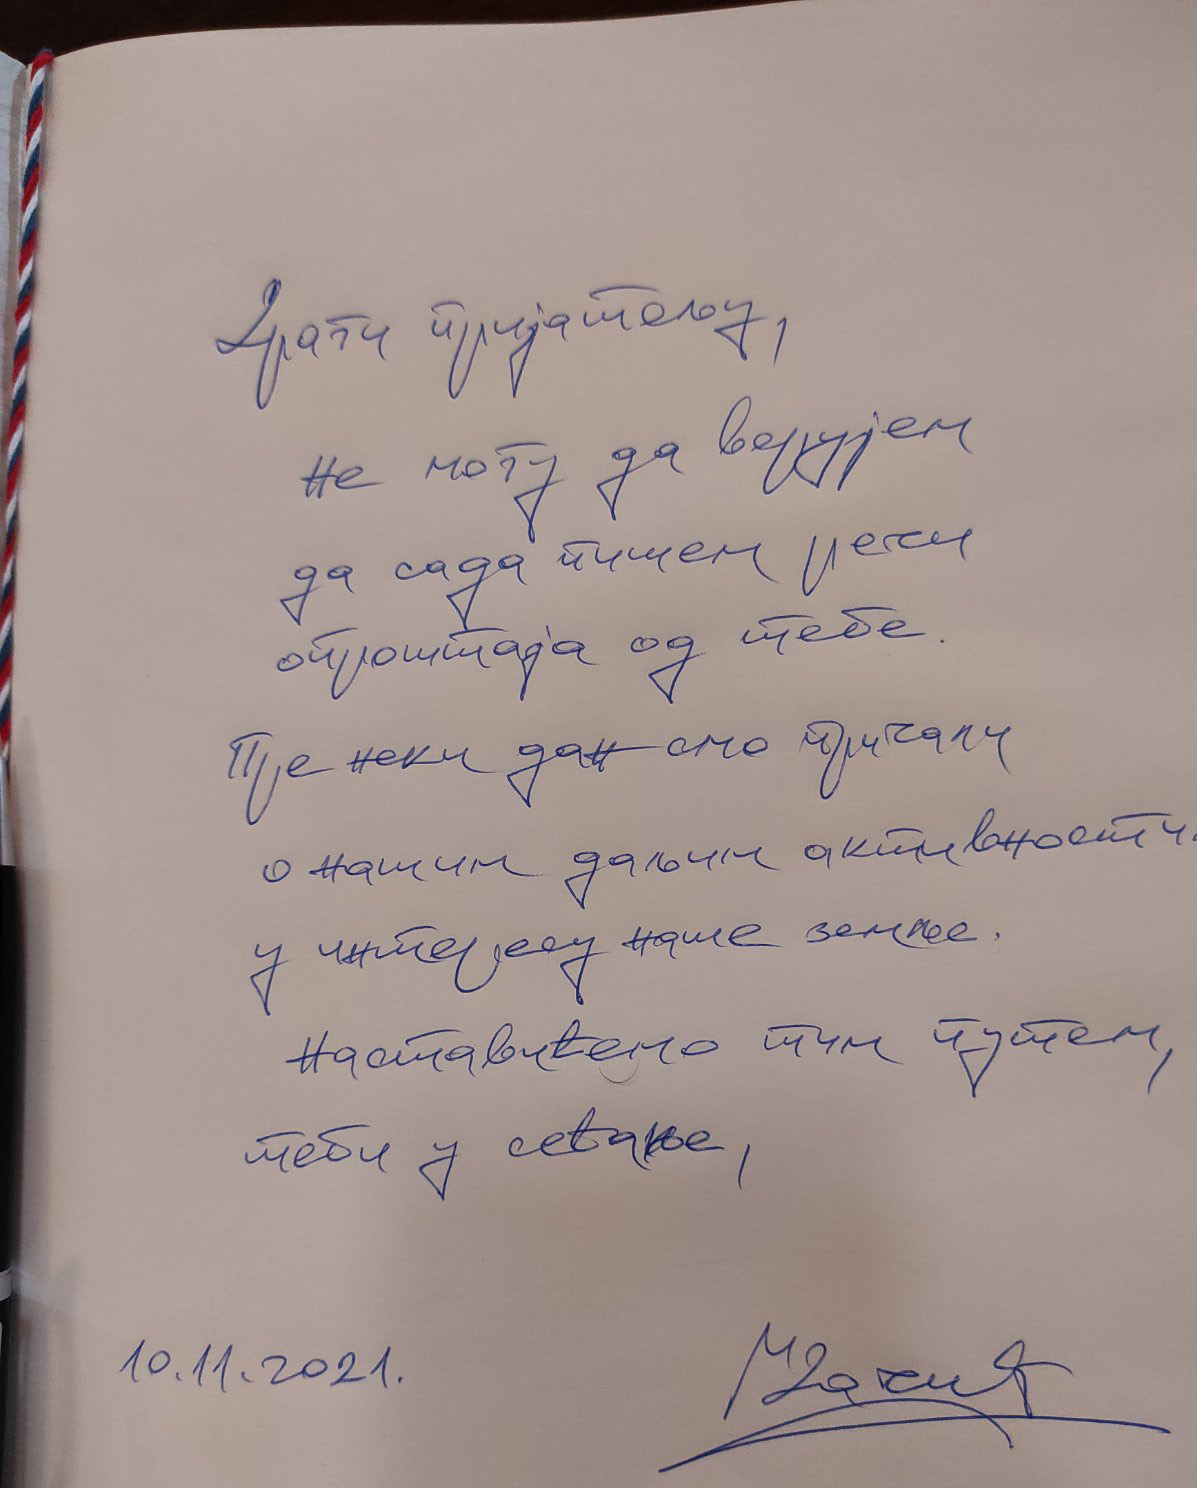 Драги пријатељу,
не могу да верујем
да сада пишем речи
опроштаја од тебе.
Пре неки дан смо причали
о нашим даљим активности
у интересу наше земље.
Наставићемо тим путем,
теби у сећање,
10.11.2021.